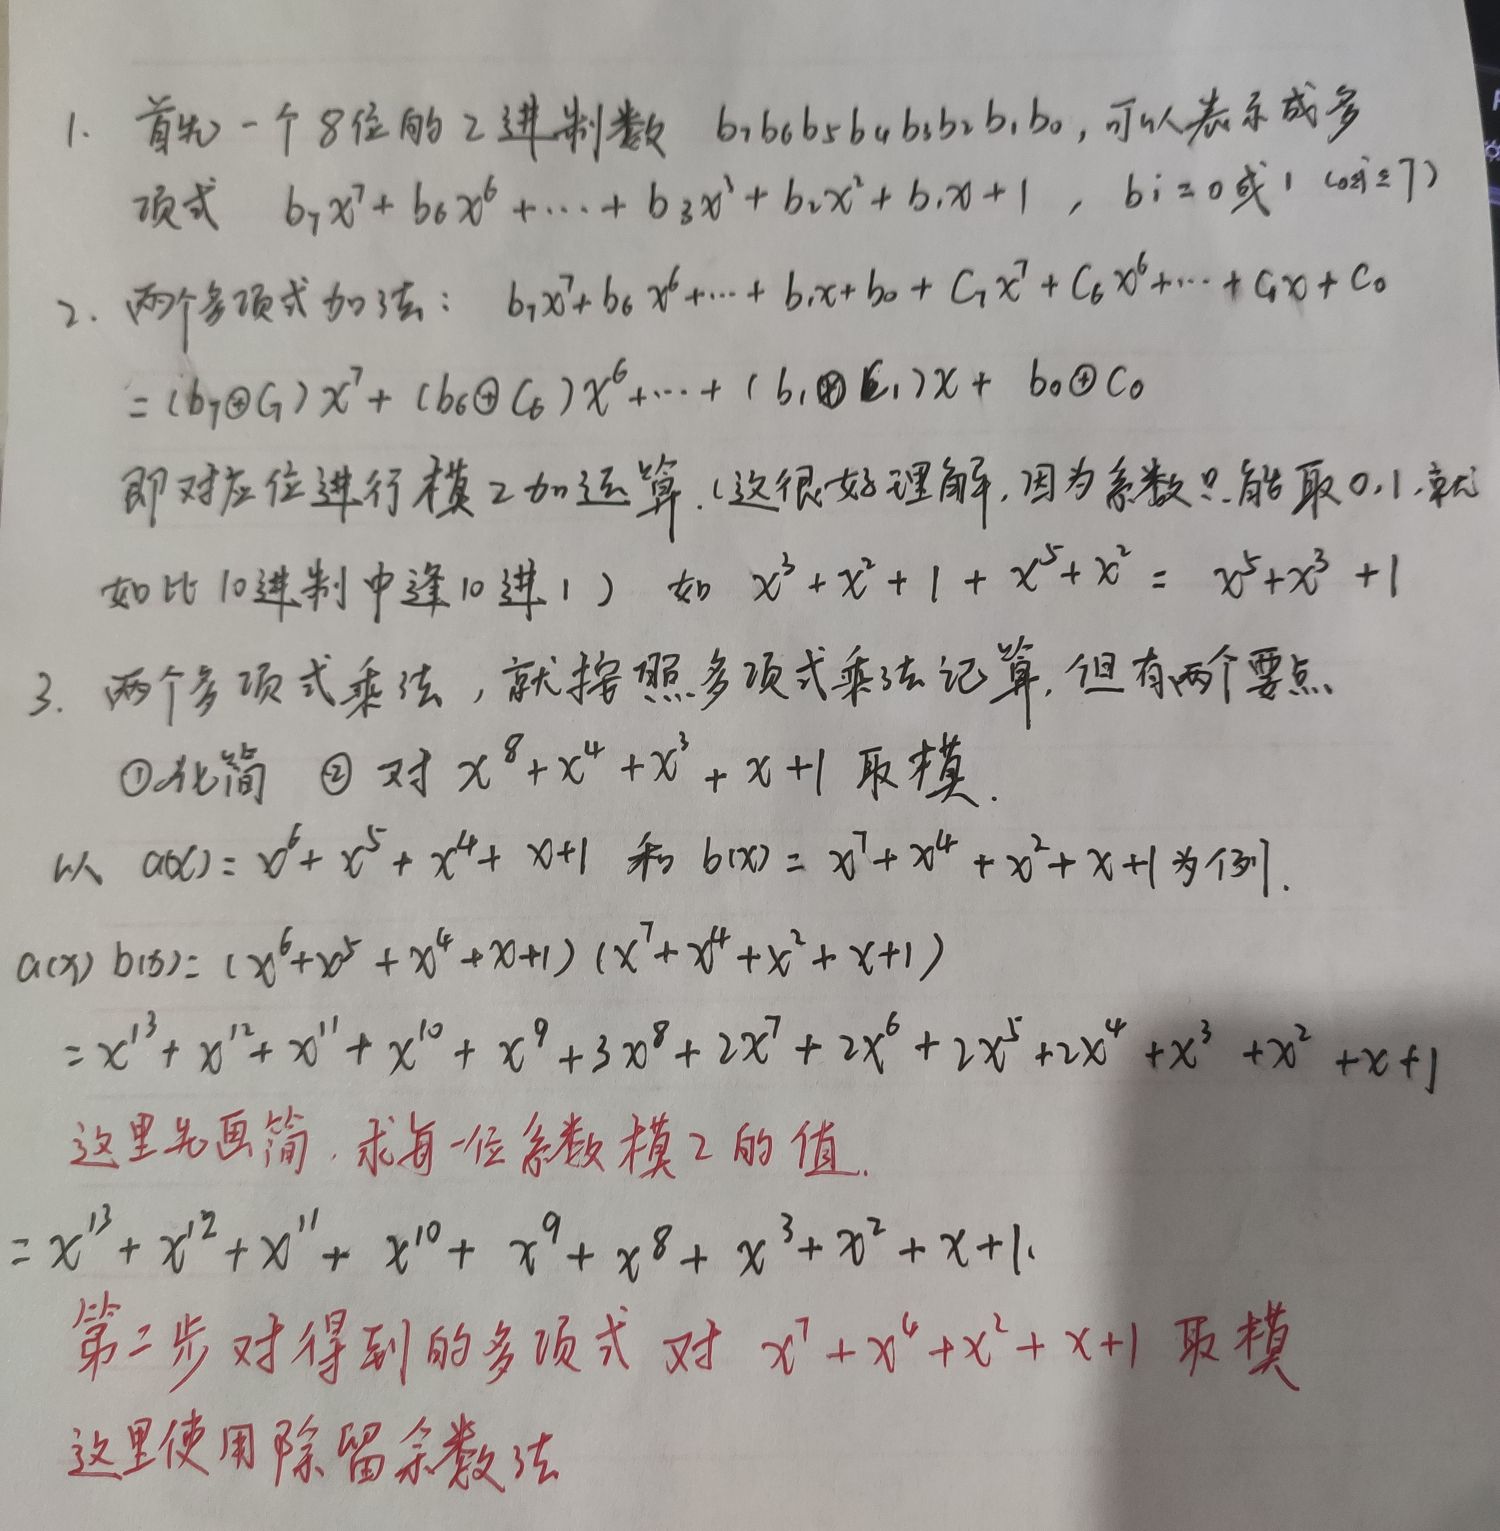 1. 首先一个8位的2进制数 b₇b₆b₅b₄b₃b₂b₁b₀,可以表示成多
项式 b₇x⁷+b₆x⁶+…+b₃x³+b₂x²+b₁x+1,bi=0或1 (0≤i≤7)
2. 两个多项式加法: b₇x⁷+b₆x⁶+…+b₁x+b₀+C₇x⁷+C₆x⁶+…+C₁x+C₀
=(b₇⊕C₇)x⁷+(b₆⊕C₆)x⁶+…+(b₁⊕C₁)x+b₀⊕C₀
即对应位进行模2加运算.(这很好理解,因为系数只能取0,1,就
如比10进制中逢10进1) 如 x³+x²+1+x⁵+x²=x⁵+x³+1
3. 两个多项式乘法,就按照多项式乘法记算,但有两个要点
①化简 ②对 x⁸+x⁴+x³+x+1 取模.
以 a(x)=x⁶+x⁵+x⁴+x+1 和 b(x)=x⁷+x⁴+x²+x+1为例.
a(x)b(x)=(x⁶+x⁵+x⁴+x+1)(x⁷+x⁴+x²+x+1)
=x¹³+x¹²+x¹¹+x¹⁰+x⁹+3x⁸+2x⁷+2x⁶+2x⁵+2x⁴+x³+x²+x+1
这里先画简,求每一位系数模2的值.
=x¹³+x¹²+x¹¹+x¹⁰+x⁹+x⁸+x³+x²+x+1.
第二步对得到的多项式对 x⁷+x⁴+x²+x+1 取模
这里使用除留余数法